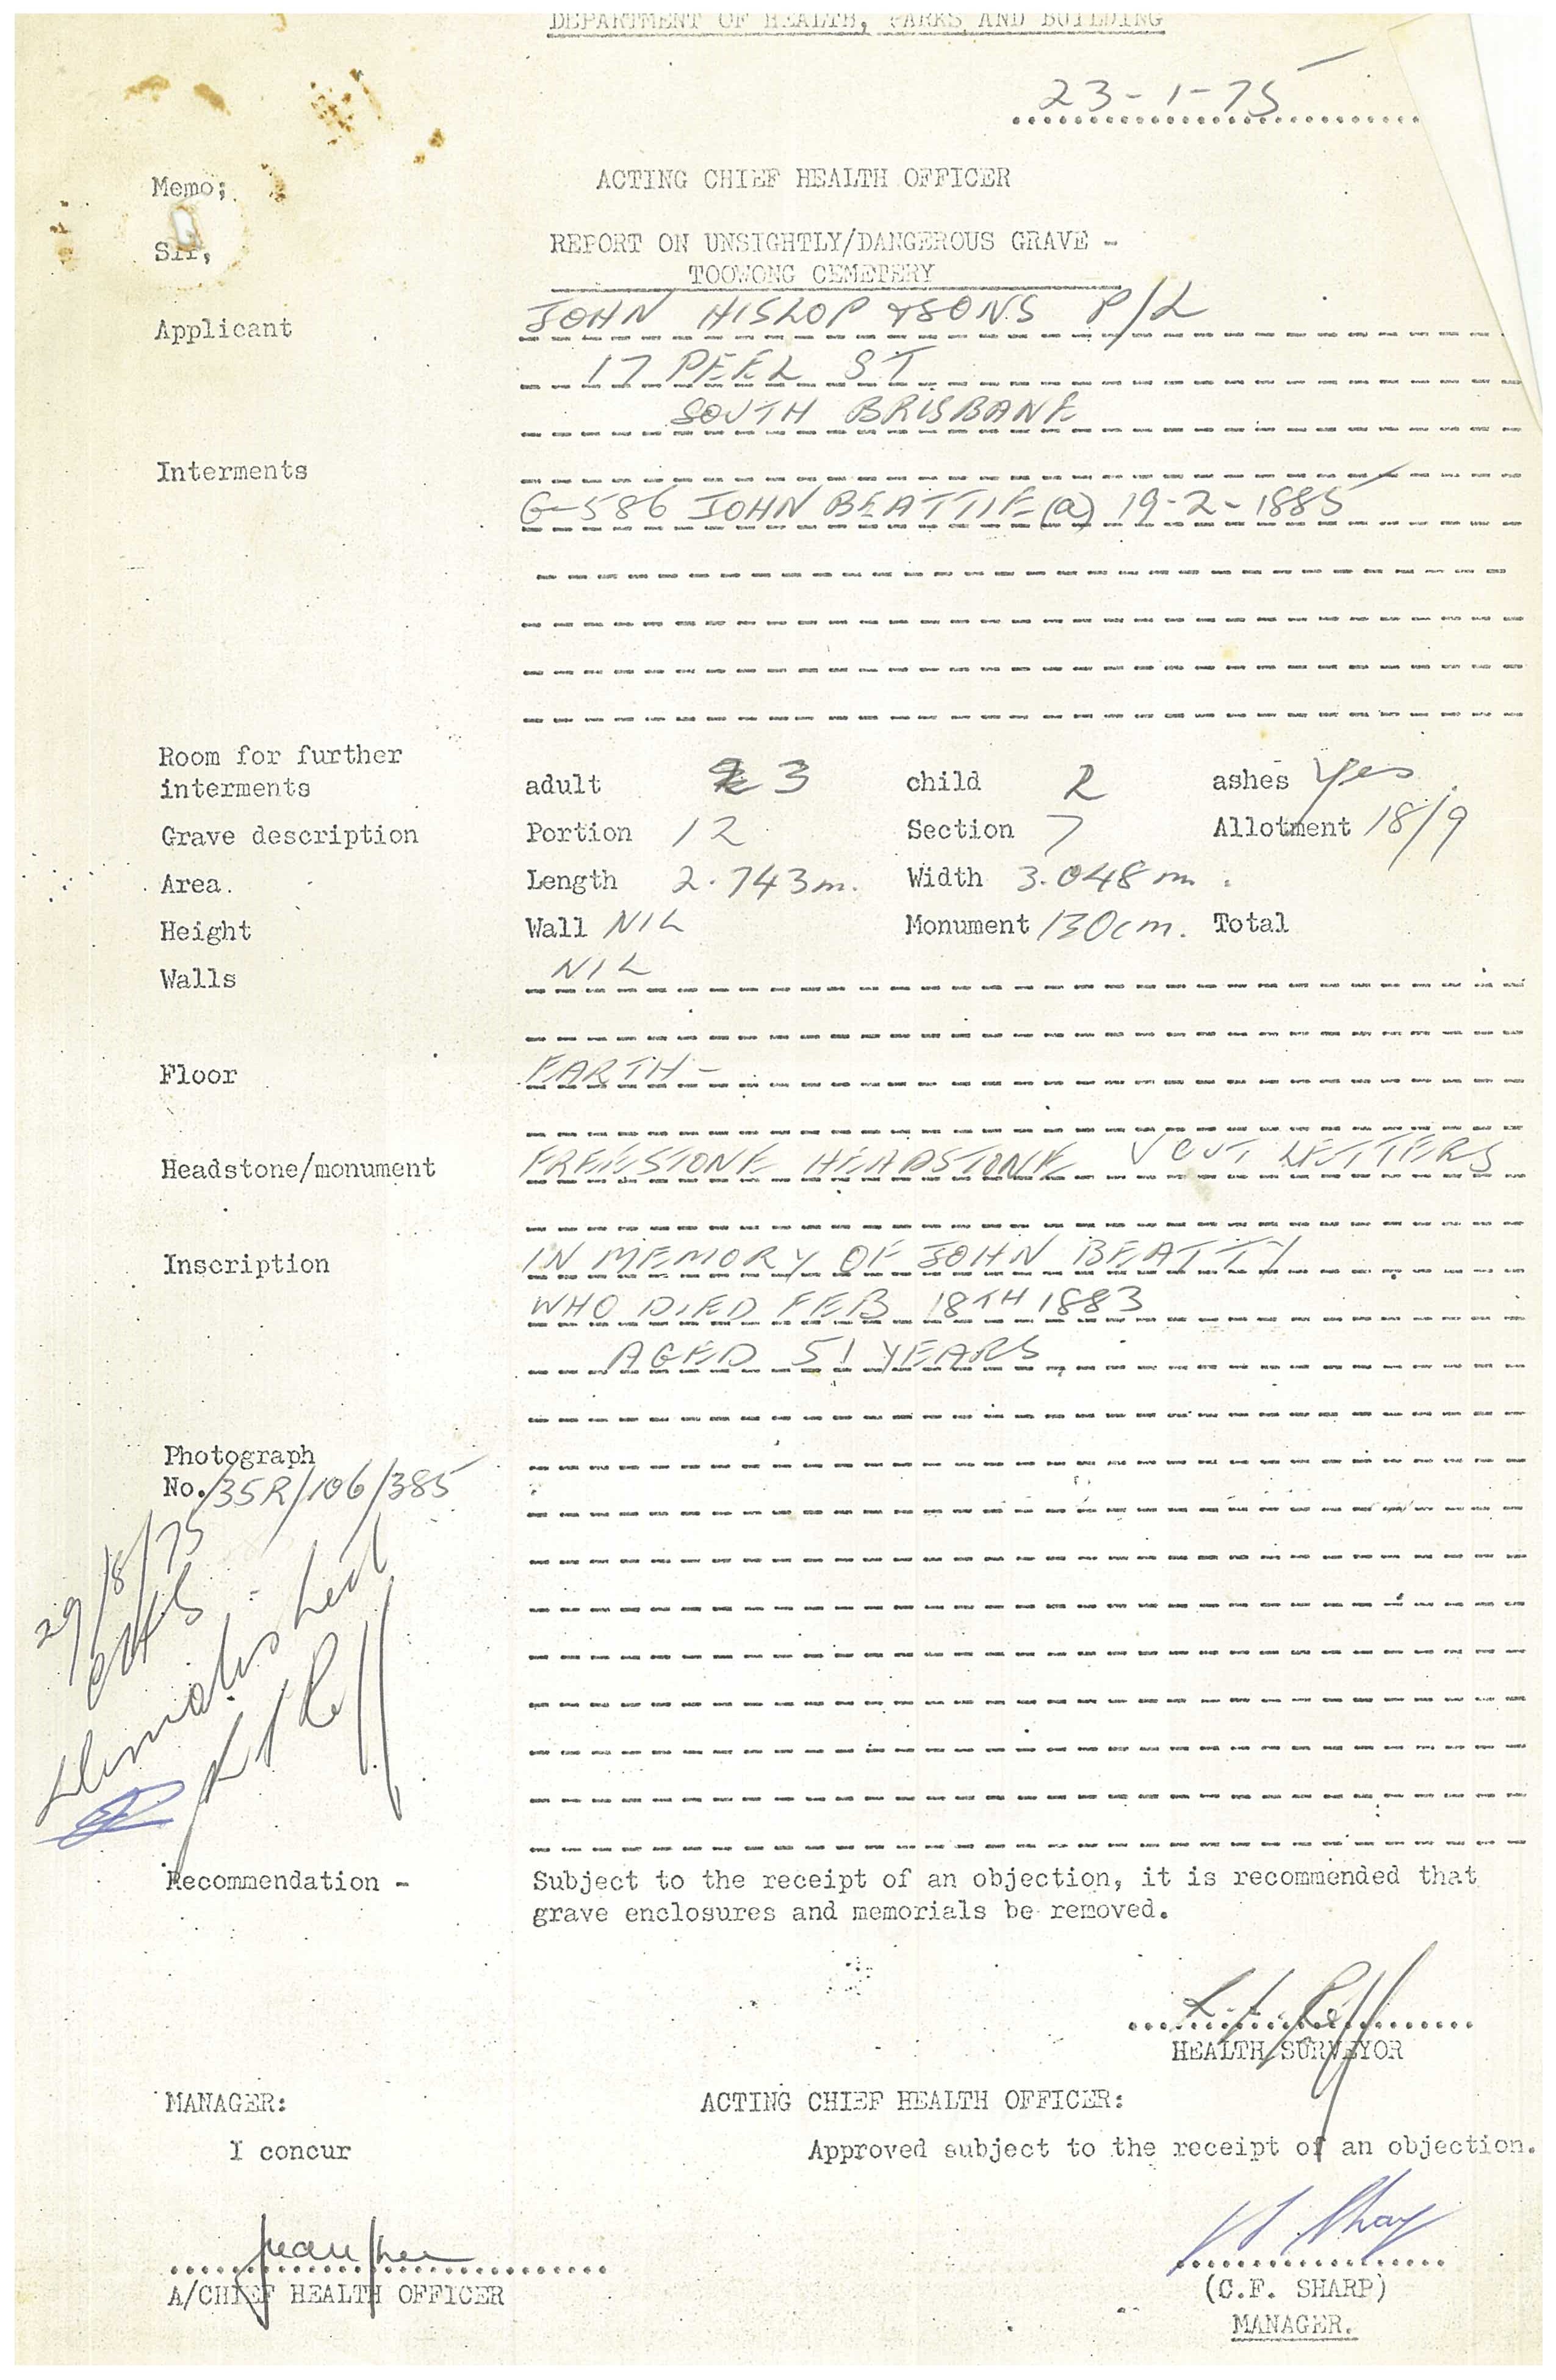 DEPARTMENT OF HEALTH, PARKS AND BUILDING
23-1-75
Memo; ACTING CHIEF HEALTH OFFICER
Sir, REPORT ON UNSIGHTLY/DANGEROUS GRAVE -
TOOWONG CEMETERY
Applicant JOHN HISLOP & SONS P/L
17 PEEL ST
SOUTH BRISBANE
Interments
G-586 JOHN BEATTIE (a) 19-2-1885
Room for further
interments adult 3 child 2 ashes Yes
Grave description Portion 12 Section 7 Allotment 18/9
Area. Length 2.743m. Width 3.048m.
Height Wall NIL Monument 130cm. Total
Walls NIL
Floor EARTH -
Headstone/monument FREESTONE HEADSTONE V CUT LETTERS
Inscription IN MEMORY OF JOHN BEATTY
WHO DIED FEB 18TH 1883
AGED 51 YEARS
Photograph
No. 35R/106/385
29/8/75
Recommendation - Subject to the receipt of an objection, it is recommended that
grave enclosures and memorials be removed.
HEALTH SURVEYOR
MANAGER: ACTING CHIEF HEALTH OFFICER:
I concur Approved subject to the receipt of an objection.
A/CHIEF HEALTH OFFICER (C.F. SHARP)
MANAGER.